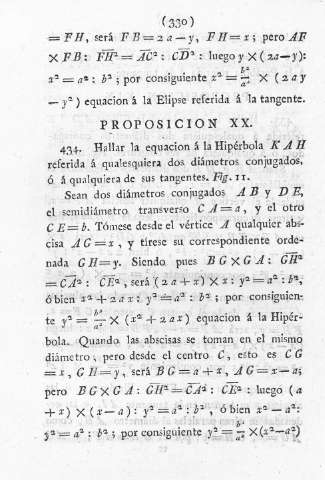 (330)
= FH, será FB = 2a — y, FH = x; pero AF
× FB: F̅H̅² = A̅C̅²: C̅D̅²: luego y × (2a — y):
x² = a²: b²; por consiguiente x² = b²/a² × (2ay
— y²) equacion á la Elipse referida á la tangente.
PROPOSICION XX.
434. Hallar la equacion á la Hipérbola KAH
referida á qualesquiera dos diámetros conjugados,
ó á qualquiera de sus tangentes. Fig. 11.
Sean dos diámetros conjugados AB y DE,
el semidiámetro transverso CA = a, y el otro
CE = b. Tómese desde el vértice A qualquier abs-
cisa AG = x, y tirese su correspondiente orde-
nada GH = y. Siendo pues BG × GA: G̅H̅²
= C̅A̅²: C̅E̅², será (2a + x) × x: y² = a²: b²,
ó bien x² + 2ax: y² = a²: b²; por consiguien-
te y² = b²/a² × (x² + 2ax) equacion á la Hipér-
bola. Quando las abscisas se toman en el mismo
diámetro, pero desde el centro C, esto es CG
= x, GH = y, será BG = a + x, AG = x — a;
pero BG × GA: G̅H̅² = C̅A̅²: C̅E̅²: luego (a
+ x) × (x — a): y² = a²: b², ó bien x² — a²:
y² = a²: b²; por consiguiente y² = b²/a² × (x² — a²)